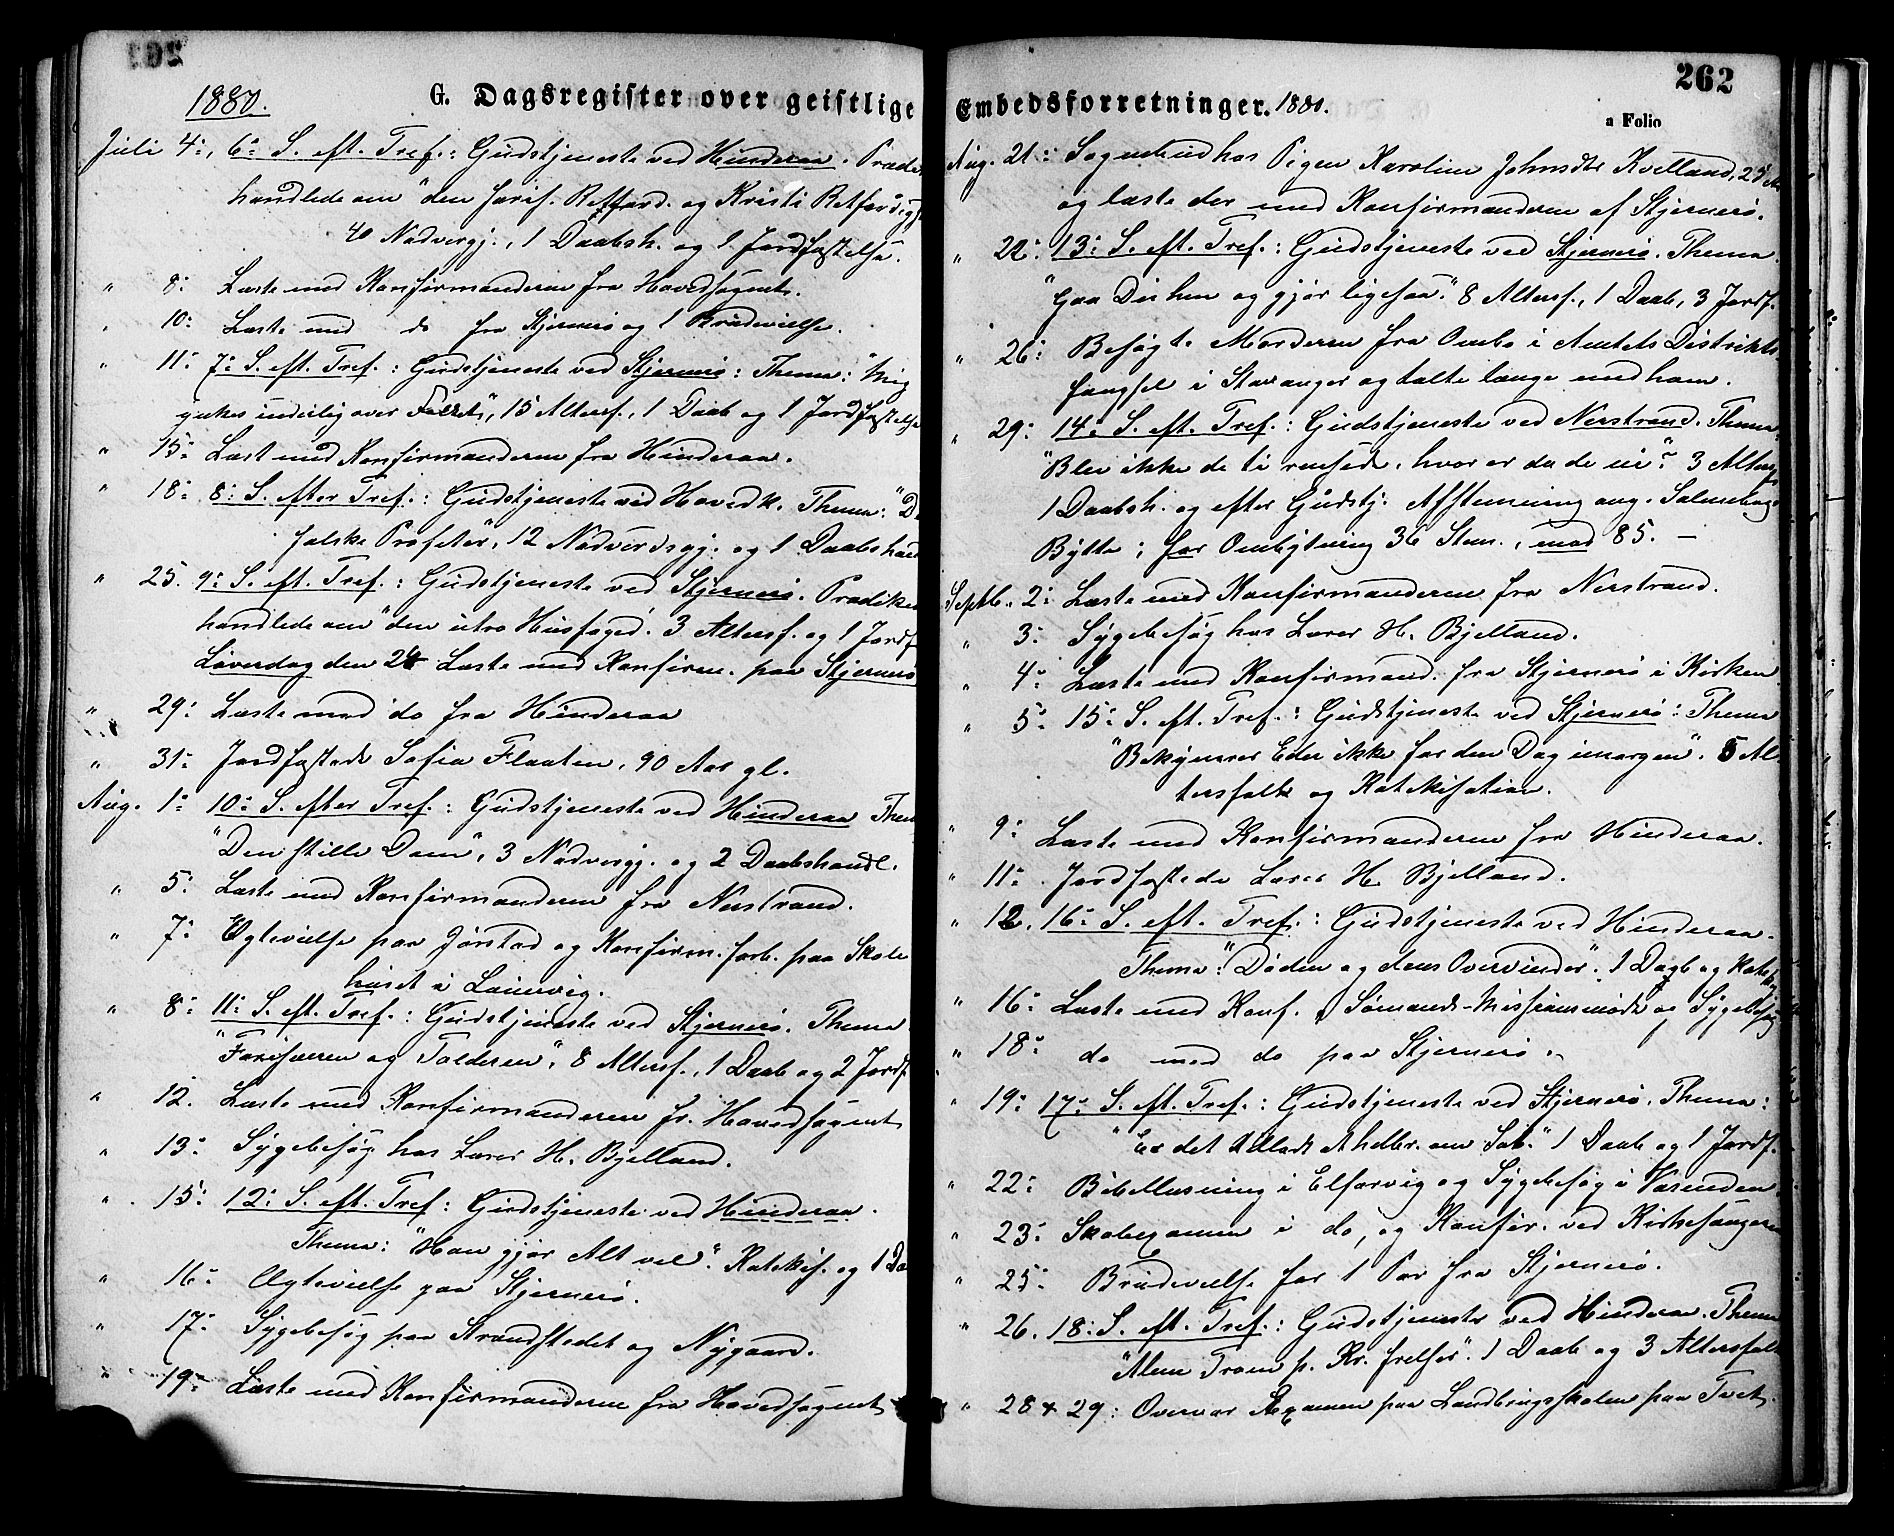 1880.
G. Dagsregister over geistlige
Juli 4:, 6: S. eft. Tref.: Gudstjeneste ved Hinderaa. Præde
handlede om "den faris. Retfærd. og Kristi Retfærdigh
40 Nadvergj., 1 Daabsh. og 1 Jordfæstelse.
" 8: Læste med Konfirmanderne fra Hovedsognet.
" 10: Læste med do fra Stjernerø og 1 Brudevielse.
" 11: 7: S. eft. Tref.: Gudstjeneste ved Stjernerø: Thema: "Mig
ynkes inderlig over Folket", 15 Altersf., 1 Daab og 1 Jordfæstelse
" 15: Læst med Konfirmanderne fra Hinderaa.
" 18: 8: S. efter Tref.: Gudstjeneste ved Hovedk. Thema: "De
falske Profeter", 12 Nadverdsgj. og 1 Daabshand
" 25. 9: S. eft. Tref.: Gudstjeneste ved Stjernerø. Prædiken
handlede om "den utro Husfoged". 3 Altersf. og 1 Jordf
Løverdag den 24 Læste med Konfirm. paa Stjernerø
" 29: Læste med do fra Hinderaa
" 31: Jordfæstede Sofia Flaaten, 90 Aar gl.
Aug. 1: 10: S. efter Tref.: Gudstjeneste ved Hinderaa Them
"Den stille Dom", 3 Nadvergj. og 2 Daabshandl.
" 5: Læste med Konfirmanderne fra Nerstrand.
" 7: Ægtevielse paa Jørstad og Konfirm. forb. paa Skole
huset i Leiervig.
" 8: 11: S. eft. Tref.: Gudstjeneste ved Stjernerø. Thema
"Farisæeren og Tolderen", 8 Altersf., 1 Daab og 2 Jordf
" 12. Læste med Konfirmanderne fr. Hovedsognet
" 13: Sygebesøg hos Lærer H. Bjelland.
" 15: 12: S. eft. Tref: Gudstjeneste ved Hinderaa.
Thema: "Han gjør Alt vel". Katekis. og 1 Da
" 16: Ægtevielse paa Stjernerø.
" 17: Sygebesøg paa Strandstedet og Nygaard.
" 19: Læste med Konfirmanderne fra Hovedsognet
262
Embedsforretninger. 1880.
a Folio
Aug. 21: Sognebud hos Pigen Karoline Johnsdtr Kvelland,
og læste der med Konfirmanderne af Stjernerø.
" 22: 13: S. eft. Tref.: Gudstjeneste ved Stjernerø. Thema
"Gaa Du hen og gjør ligesaa." 8 Altersf., 1 Daab, 3 Jordf.
" 26: Besøgte Morderen fra Ombo i Amtets Distrikts
fængsel i Stavanger og talte længe med ham.
" 29: 14: S. eft. Tref.: Gudstjeneste ved Nerstrand. Thema
"Blev ikke de ti rensede, hvor er da de ni"? 3 Altersg
1 Daabsh. og efter Gudstj. Afstemning ang. Salmebogs
Bytte; for Ombytning 36 Stem., mod 85. —
Septb. 2: Læste med Konfirmanderne fra Nerstrand.
" 3: Sygebesøg hos Lærer H. Bjelland.
" 4: Læste med Konfirmand. fra Stjernerø i Kirken
" 5: 15: S. eft. Tref.: Gudstjeneste ved Stjernerø: Thema
"Bekymrer Eder ikke for den Dag imorgen". 5 Al
tersfolk og Katekisation.
" 9: Læste med Konfirmanderne fra Hinderaa.
" 11: Jordfæstede Lærer H. Bjelland.
" 12. 16: S. eft. Tref.: Gudstjeneste ved Hinderaa.
Thema: "Døden og dens Overvinder". 1 Daab og Kate
" 16: Læste med Konf. Sømands-Missionsmøde og Sygebesøg
" 18: do med do paa Stjernerø.
" 19: 17: S. eft. Tref.: Gudstjeneste ved Stjernerø. Thema:
"Er det tilladt at helbr. om Sab." 1 Daab og 1 Jordf.
" 22: Bibellæsning i Elfarvig og Sygebesøg i
" 23: Skoleexamen i do, og Konfir. ved Kirkesangeren
" 25: Brudevielse for 1 Par fra Stjernerø.
" 26. 18: S. eft. Tref.: Gudstjeneste ved Hinderaa. Thema
"Alene Troen p. Kr. frelser". 1 Daab og 3 Altersfolk
" 28 & 29: Overvar Examen paa Landbrugsskolen paa Tvet.